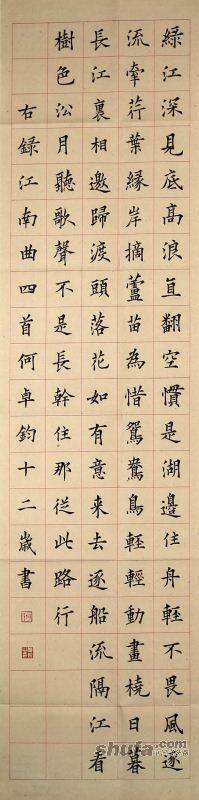 綠江深見底高浪直翻空慣是湖邊住舟輕不畏風逐
流牽荇葉緣岸摘蘆苗為惜鴛鴦鳥輕輕動畫橈日暮
長江裏相邀歸渡頭落花如有意来去逐船流隔江看
樹色沿月聽歌聲不是長幹住那從此路行
右録江南曲四首何卓鈞十二歲書
shufa.com